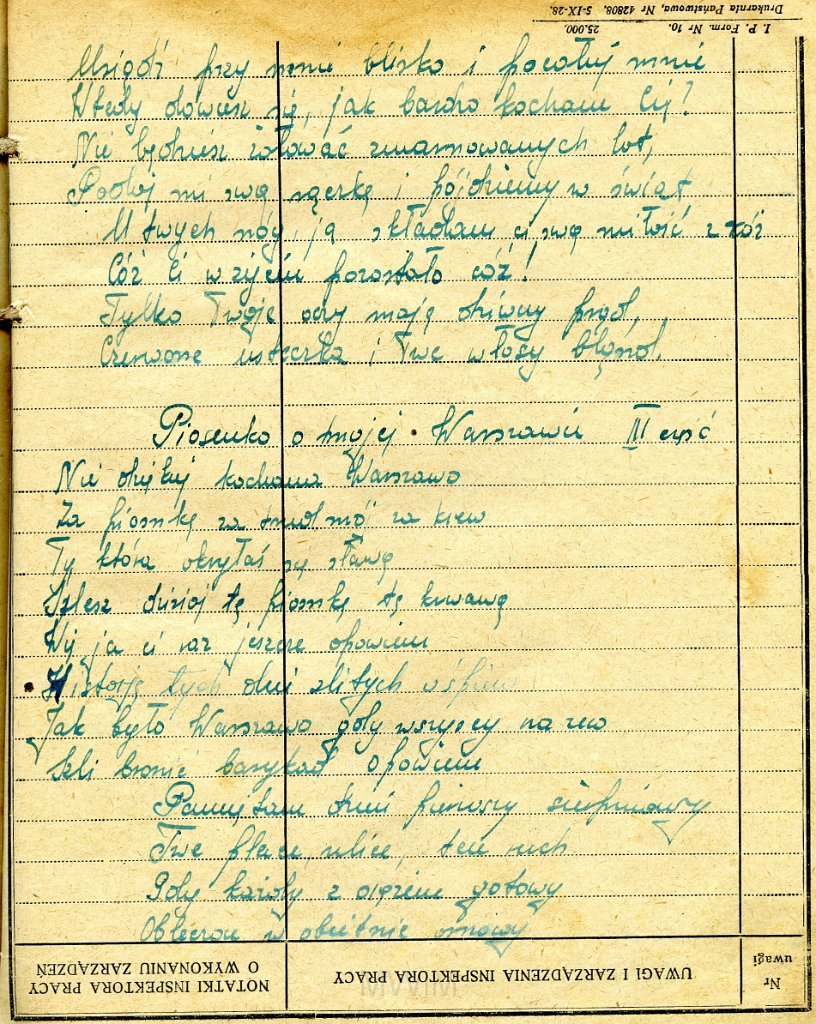 I. P. Form. Nr 10. 25.000.
Drukarnia Państwowa, Nr 42808, 5-IX-28.
Usiądź przy mnie blisko i pocałuj mnie
Wtedy dowiesz się, jak bardzo kocham Cię?
Nie będziesz żałować zmarnowanych lat,
Podaj mi swą rączkę i pójdziemy w świat
U twych nóg, ja składam ci swą miłość z róż
Cóż Ci w życiu pozostało cóż!
Tylko Twoje oczy mają dziwny prąd,
Czerwone usteczka i Twe włosy blond.
Piosenka o mojej Warszawie III część
Nie dziękuj kochana Warszawo
Za piosnkę za trud mój za krew
Ty która okryłaś się sławą
Ślesz dzisiaj tę piosnkę tę krwawą
ja ci raz jeszcze opowiem
Historję tych dni zlitych
Jak było Warszawo gdy wszyscy na zew
Szli bronić barykad opowiem
Pamiętam dzień pierwszy sierpniowy
Twe place, ulice, ten ruch
Gdy każdy z orężem gotowy
w obietnic
Nr uwagi
UWAGI I ZARZĄDZENIA INSPEKTORA PRACY
NOTATKI INSPEKTORA PRACY
O WYKONANIU ZARZĄDZEŃ